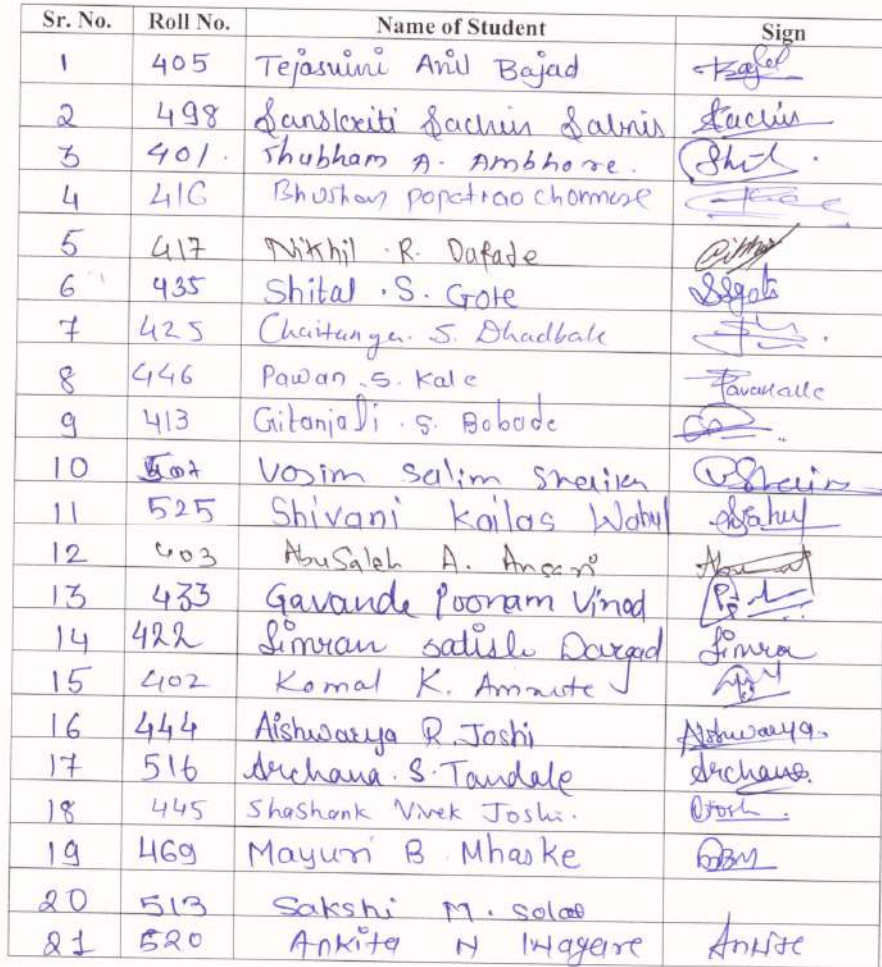 Sr. No. Roll No. Name of Student Sign
1 405 Tejaswini Anil Bajad
2 498 Sanskriti Sachin Sabnis Sachin
3 401. Shubham A. Ambhore.
4 416 Bhushan popatrao
5 417 Nikhil R. Dafade
6 435 Shital . S. Gote SSgote
7 425 Chaitanya. S. Dhadbale
8 446 Pawan .S. Kale Pavankale
9 413 Gitanjali . S. Bobade
10 Vosim Salim Sheikh
11 525 Shivani Kailas Wahul
12 403 AbuSaleh A. Ansari
13 433 Gavande Poonam Vinod
14 422 Simran satish Dargad Simra
15 402 Komal K. Amnute
16 444 Aishwarya R. Joshi Aishwarya.
17 516 Archana . S. Tandale Archana.
18 445 Shashank Vivek Joshi.
19 469 Mayuri B Mhaske
20 513 Sakshi M. Solao
21 520 Ankita N Ankite